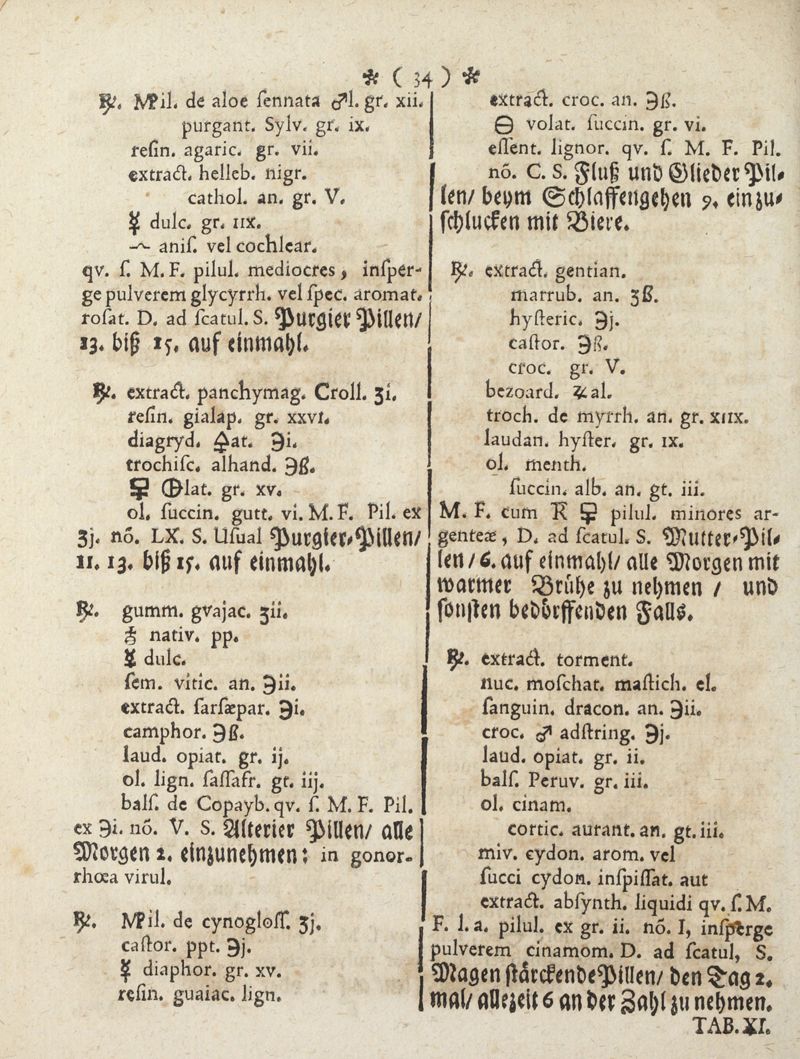 * ( 34 ) *
℞. M℞il. de aloe ſennata ♂l. gr. xii.
purgant. Sylv. gr. ix.
reſin. agaric. gr. vii.
extract. helleb. nigr.
cathol. an. gr. V.
☿ dulc. gr. iix.
aniſ. vel cochlear.
qv. ſ. M. F. pilul. mediocres, inſper-
ge pulverem glycyrrh. vel ſpec. aromat.
roſat. D. ad ſcatul. S. Purgier Pillen/
13. biß 15. auf einmahl.
℞. extract. panchymag. Croll. ʒi.
reſin. gialap. gr. xxvi.
diagryd. at. ℈i.
trochiſc. alhand. ℈ß.
lat. gr. xv.
ol. ſuccin. gutt. vi. M. F. Pil. ex
ʒj. nō. LX. S. Uſual Purgier-Pillen/
11. 13. biß 15. auf einmahl.
℞. gumm. gvajac. ʒii.
nativ. pp.
☿ dulc.
ſem. vitic. an. ℈ii.
extract. ſarſæpar. ℈i.
camphor. ℈ß.
laud. opiat. gr. ij.
ol. lign. ſaſſafr. gt. iij.
balſ. de Copayb. qv. ſ. M. F. Pil.
ex ℈i. nō. V. S. Alterier Pillen/ alle
Morgen 2. einzunehmen: in gonor-
rhœa virul.
℞. M℞il. de cynogloſſ. ʒj.
caſtor. ppt. ℈j.
☿ diaphor. gr. xv.
reſin. guaiac. lign.
extract. croc. an. ℈ß.
volat. ſuccin. gr. vi.
eſſent. lignor. qv. ſ. M. F. Pil.
nō. C. S. Fluß und Glieder Pil-
len/ beym Schlaffengehen 9. einzu-
ſchlucken mit Biere.
℞. extract. gentian.
marrub. an. ʒß.
hyſteric. ℈j.
caſtor. ℈ß.
croc. gr. V.
bezoard. ♃al.
troch. de myrrh. an. gr. xiix.
laudan. hyſter. gr. ix.
ol. menth.
ſuccin. alb. an. gt. iii.
M. F. cum pilul. minores ar-
genteæ, D. ad ſcatul. S. Mutter-Pil-
len / 6. auf einmahl/ alle Morgen mit
warmer Brühe zu nehmen / und
ſonſten bedörffenden Falls.
℞. extract. torment.
nuc. moſchat. maſtich. el.
ſanguin. dracon. an. ℈ii.
croc. ♂ adſtring. ℈j.
laud. opiat. gr. ii.
balſ. Peruv. gr. iii.
ol. cinam.
cortic. aurant. an. gt. iii.
miv. cydon. arom. vel
ſucci cydon. inſpiſſat. aut
extract. abſynth. liquidi qv. ſ. M.
F. l. a. pilul. ex gr. ii. nō. I, inſperge
pulverem cinamom. D. ad ſcatul, S.
Magen ſtärckende Pillen/ den Tag 2.
mal/ allezeit 6 an der Zahl zu nehmen.
TAB. XI.